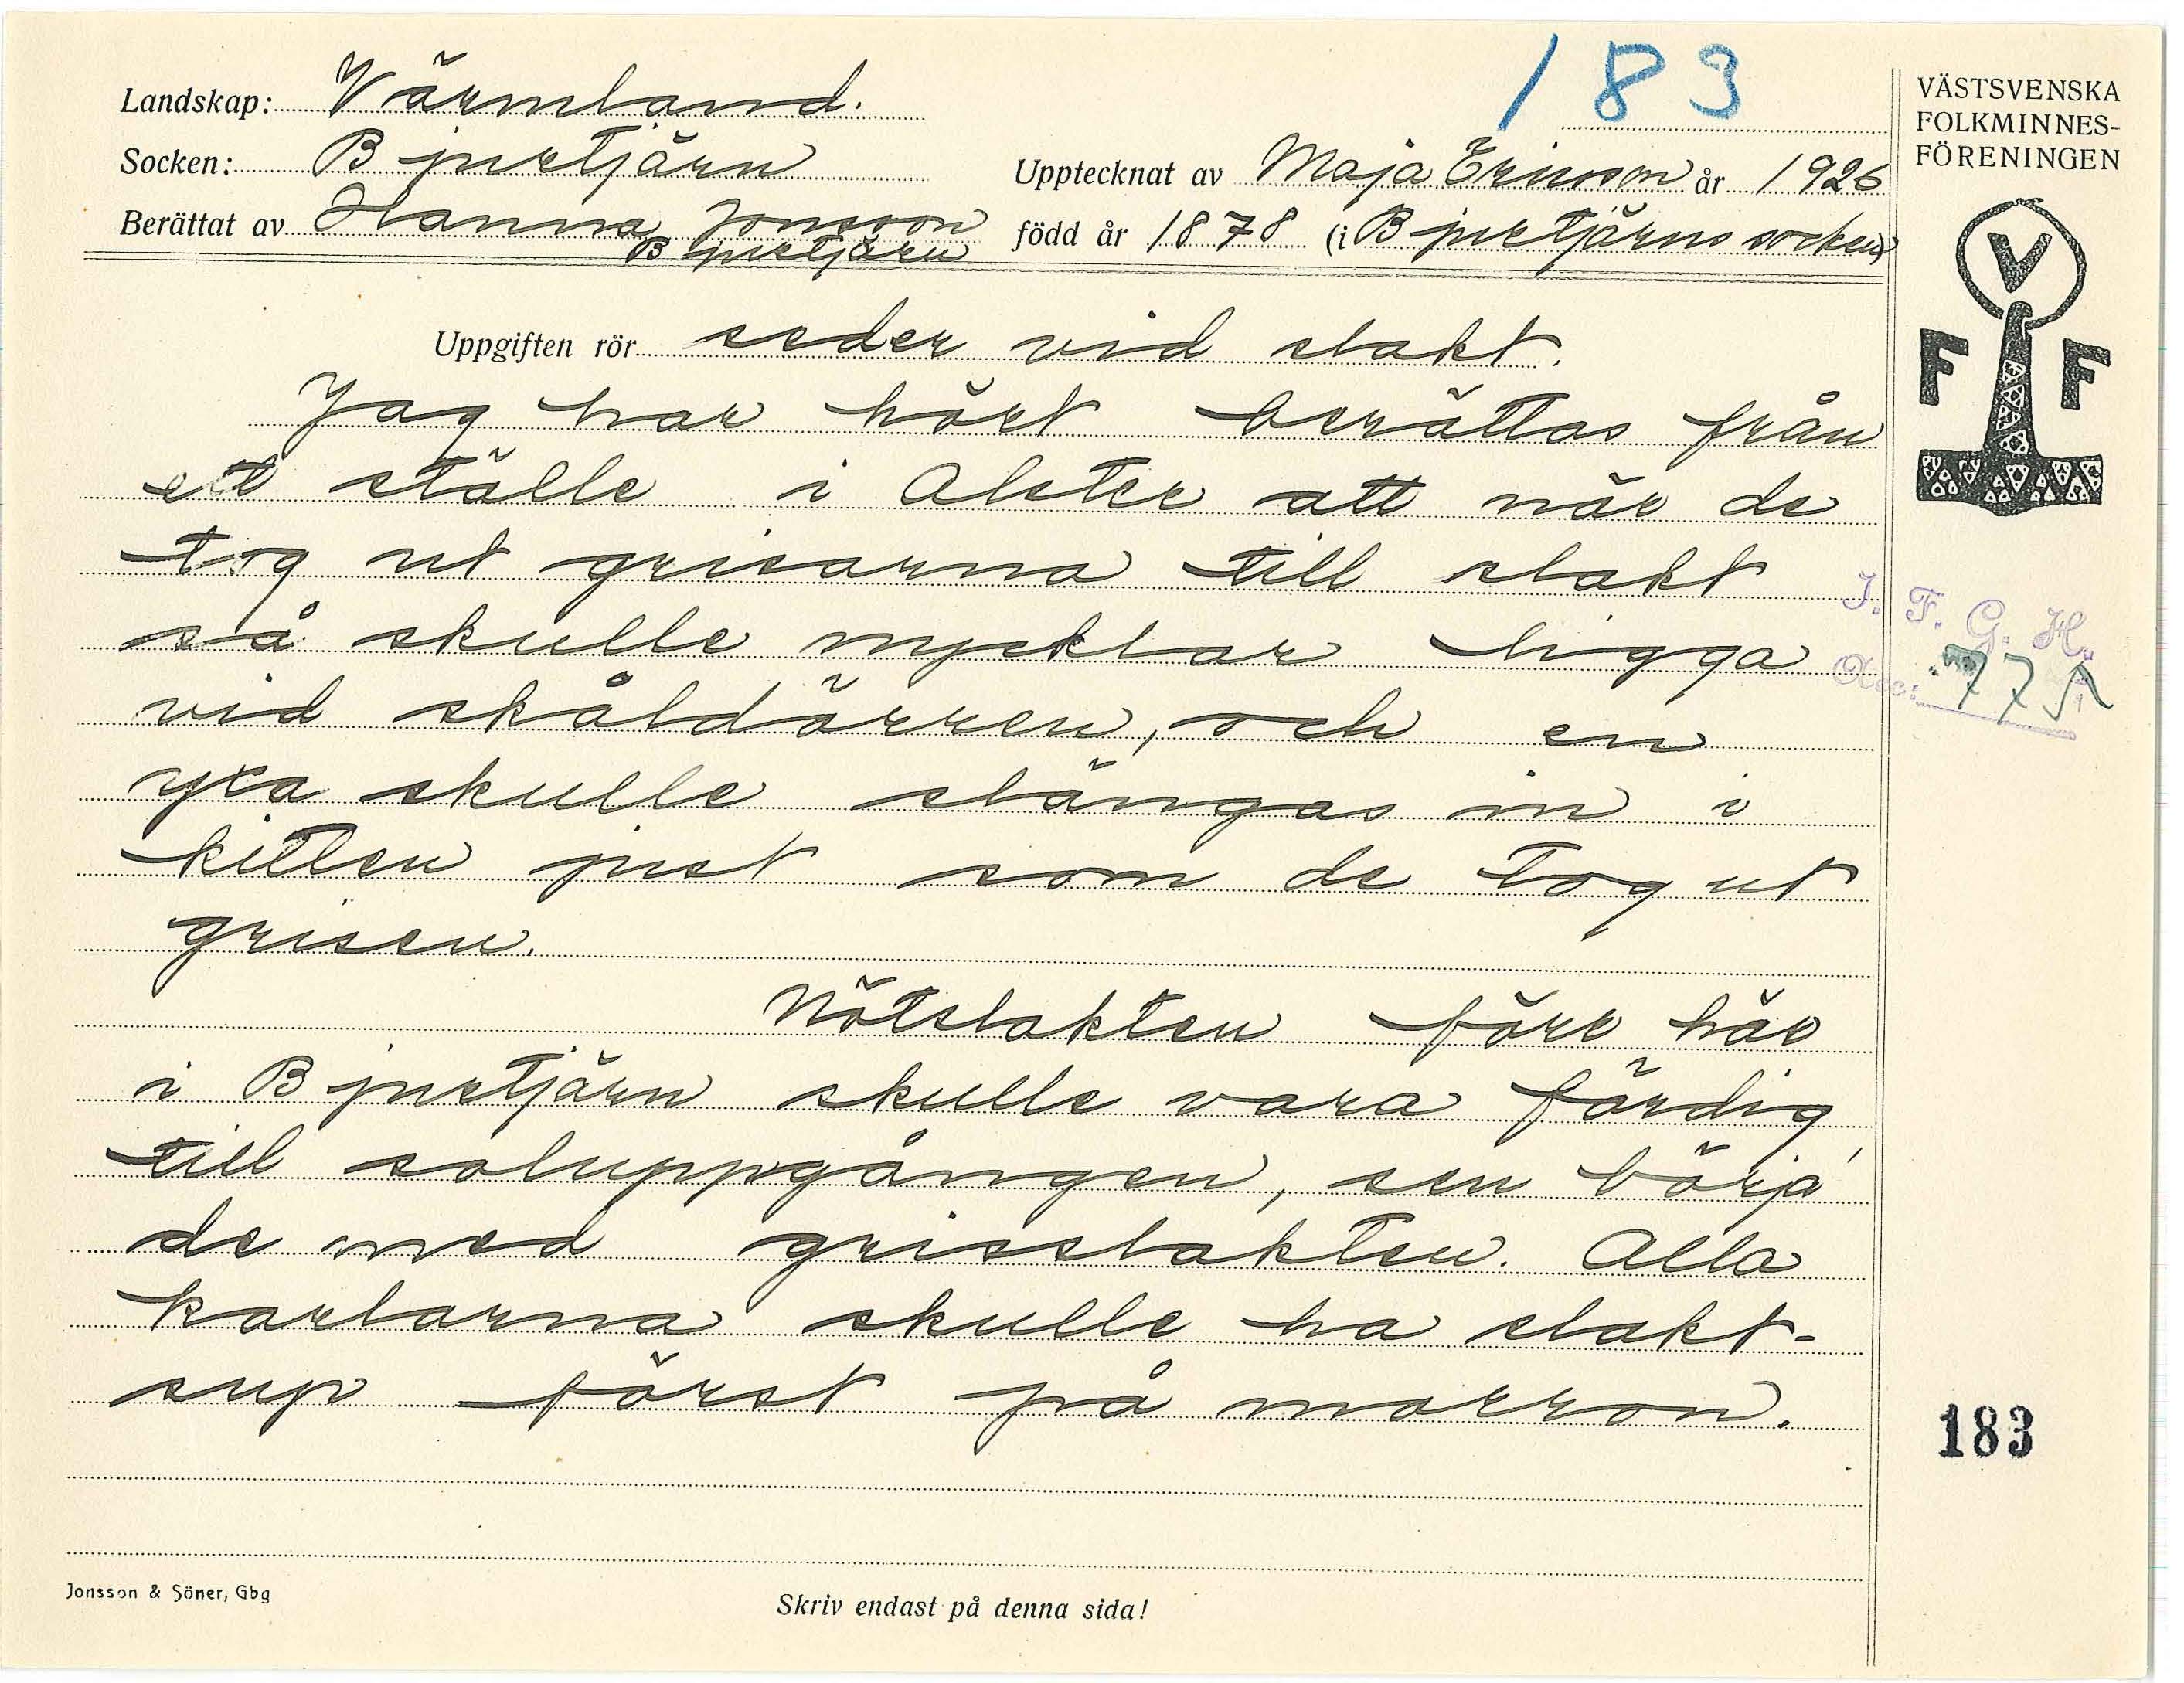 183
Landskap: Värmland.
Socken: Bjurtjärn
Upptecknat av Maja Ericson år 1926
Berättat av Hanna Jonsson
Bjurtjärn
född år 1878 (i Bjurtjärns socken)
VÄSTSVENSKA
FOLKMINNES-
FÖRENINGEN
V
F F
Uppgiften rör seder vid slakt.
Jag har hört berättas från
ett ställe i Alster att när de
tog ut grisarna till slakt
så skulle nycklar ligga
vid skåldörren, och en
yxa skulle slängas in i
kitten just som de tog ut
grisen.
Nötslakten förr här
i Bjurtjärn skulle vara färdig
till soluppgången, sen börja'
de med grisslakten. Alla
karlarna skulle ha slakt-
sup först på morron.
I. F. G. H.
Acc: 775
183
Jonsson & Söner, Gbg
Skriv endast på denna sida!